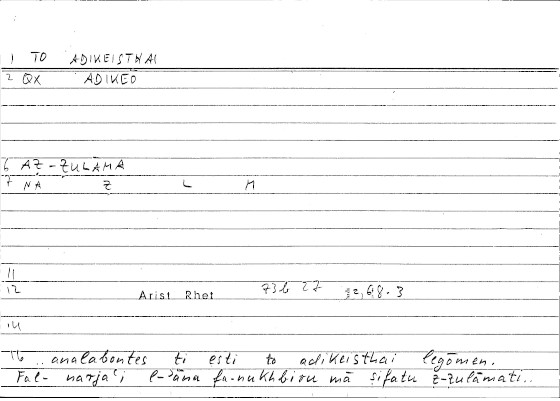 1 TO ADIKEISTHAI
2 QX ADIKEO
6 AẒ-ẒULĀMA
7 NA Ẓ L M
11
12 Arist Rhet 73b 27 68.3
14
16 ..analabontes ti esti to adikeisthai legōmen.
Fal-narjaʿi l-ʾāna fa-nukhbiru mā ṣifatu ẓ-ẓulāmati..